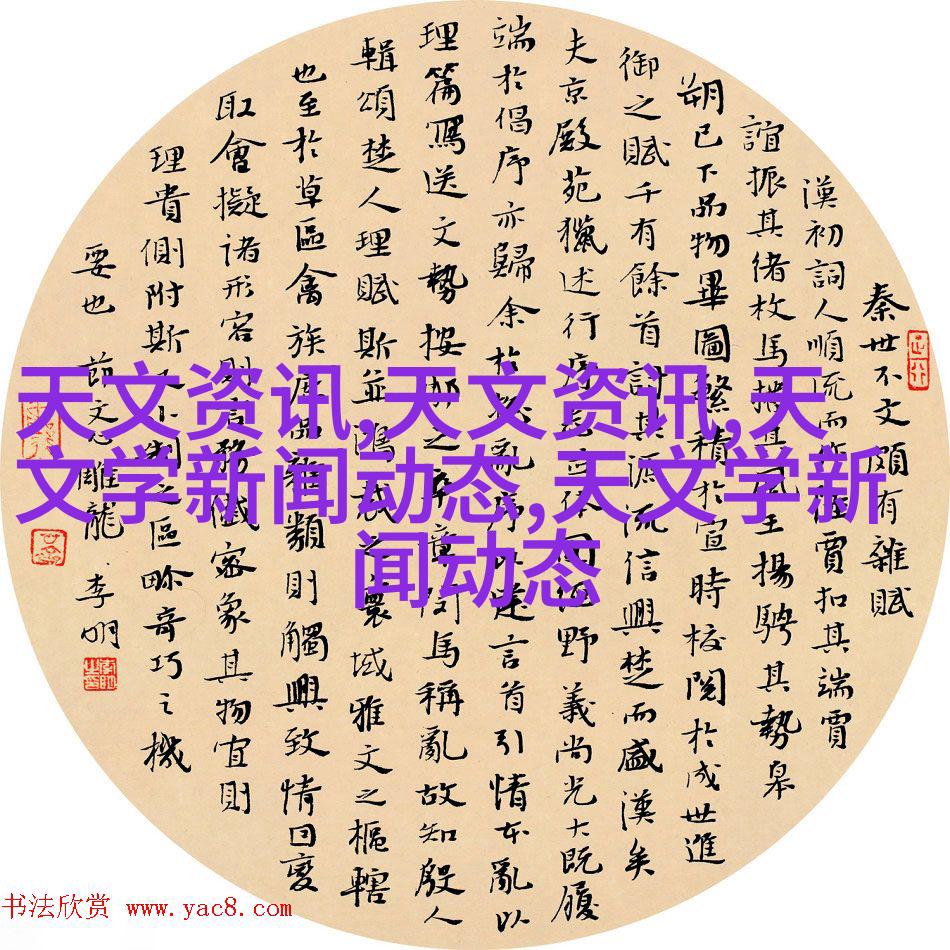 秦世不文頗有雜賦
漢初詞人順流而作陸賈扣其端賈
誼振其緒枚馬播其風王揚騁其勢皋
朔已下品物畢圖繁積於宣時校閱於成世進
御之賦千有餘首討其源流信興楚而盛漢矣
夫京殿苑獵述行序志並体國經野義尚光大既履
端於倡序亦歸余於總亂序以建言首引情本亂以
理篇寫送文勢按那之卒章閔馬稱亂故知殷人
輯頌楚人理賦斯並鴻裁之寰域雅文之樞轄
也至於草區禽族庶品雜類則觸興致情因變
取會擬諸形容則言務纖密象其物宜則
理貴側附斯又小制之區畛奇巧之機
要也 節文心雕龍 李明
天文资讯,天文资讯,天
文学新闻动态,天文学新
闻动态
书法欣赏 www.yac8.com